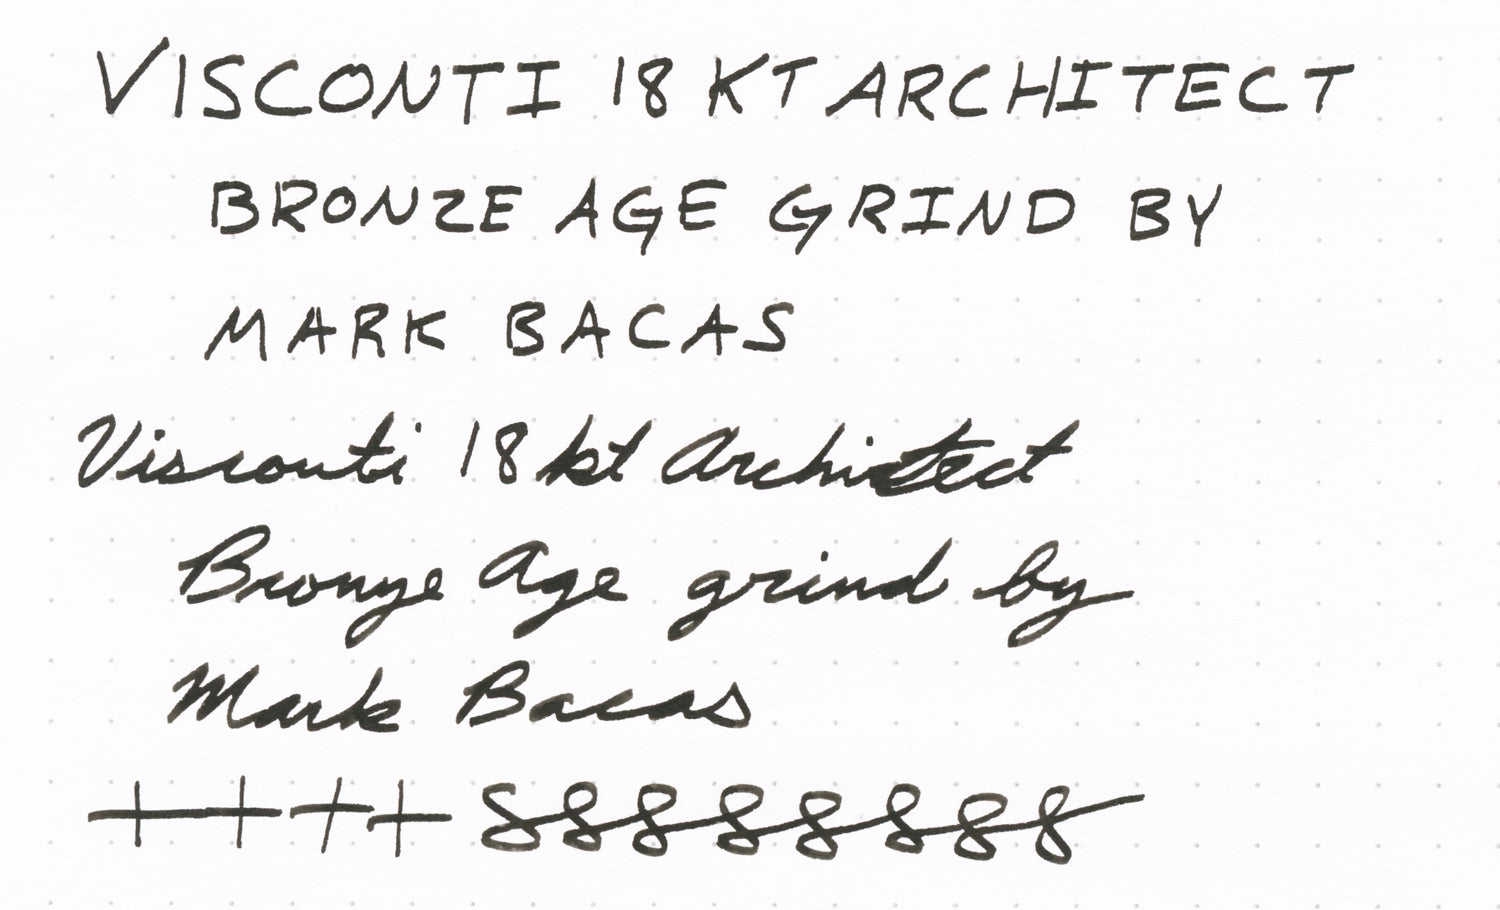 VISCONTI 18 KT ARCHITECT
BRONZE AGE GRIND BY
MARK BACAS
Visconti 18 kt Architect
Bronze Age grind by
Mark Bacas
++++ 88888888